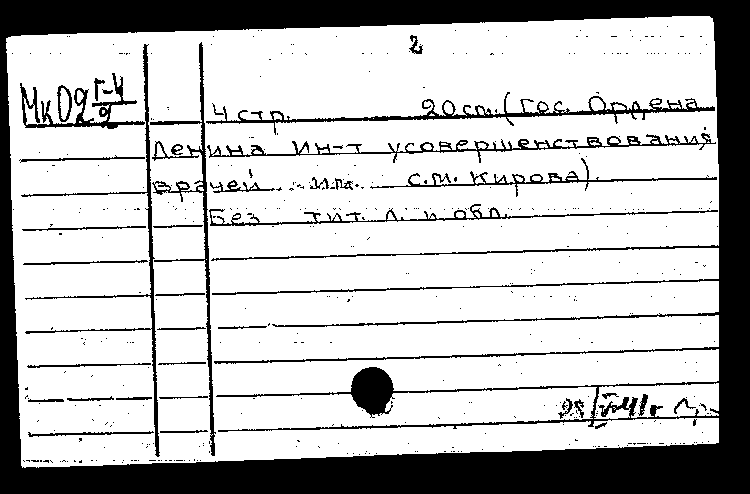 2
МкО2 Г-4/2
4 стр. 20 см. (Гос. Ордена
Ленина Ин-т усовершенствования
врачей им. С.М. Кирова).
Без тит. л. и обл.